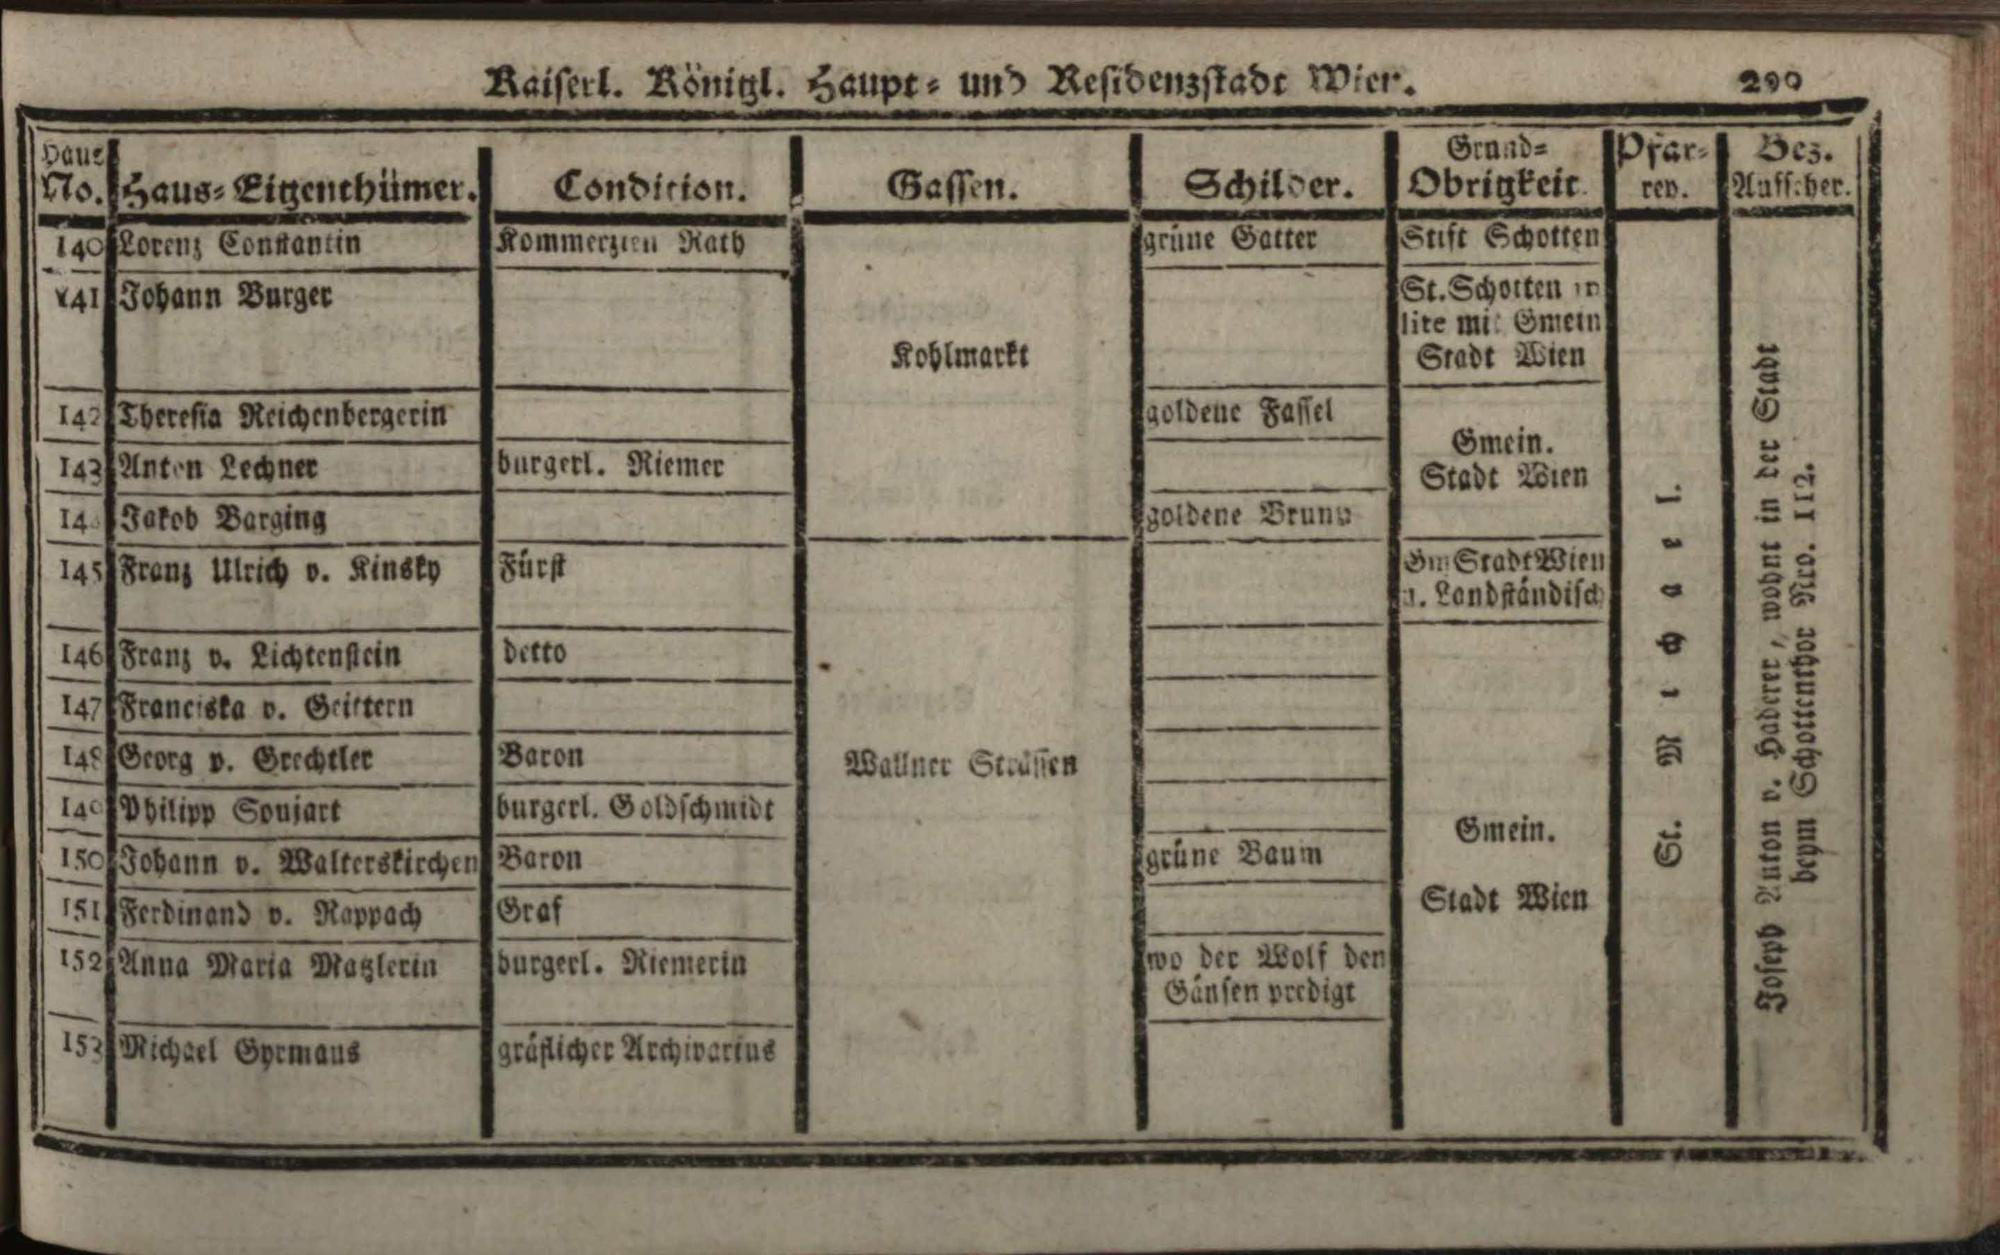 Kaiserl. Königl. Haupt- und Residenzstadt Wien. 299
Haus No. Haus-Eigenthümer. Condition. Gassen. Schilder. Grund-Obrigkeit Pfar-rey. Bez. Aufseher.
140 Lorenz Constantin Kommerzien Rath grüne Gatter Stift Schotten
141 Johann Burger St. Schotten in
lite mit Gmein
Kohlmarkt Stadt Wien
142 Theresia Reichenbergerin goldene Fassel
Gmein.
143 Anton Lechner burgerl. Riemer Stadt Wien
144 Jakob Barging goldene Brunn
145 Franz Ulrich v. Kinsky Fürst Gm Stadt Wien
u. Landständisch
146 Franz v. Lichtenstein detto
147 Franciska v. Geittern
148 Georg v. Grechtler Baron Wallner Strässen
149 Philipp Soujart burgerl. Goldschmidt Gmein.
150 Johann v. Walterskirchen Baron grüne Baum
151 Ferdinand v. Rappach Graf Stadt Wien
152 Anna Maria Matzlerin burgerl. Riemerin wo der Wolf den
Gänsen predigt
153 Michael Gyrmaus gräflicher Archivarius
St. Michael.
Joseph Anton v. Haderer, wohnt in der Stadt
beym Schottenthor Nro. 112.